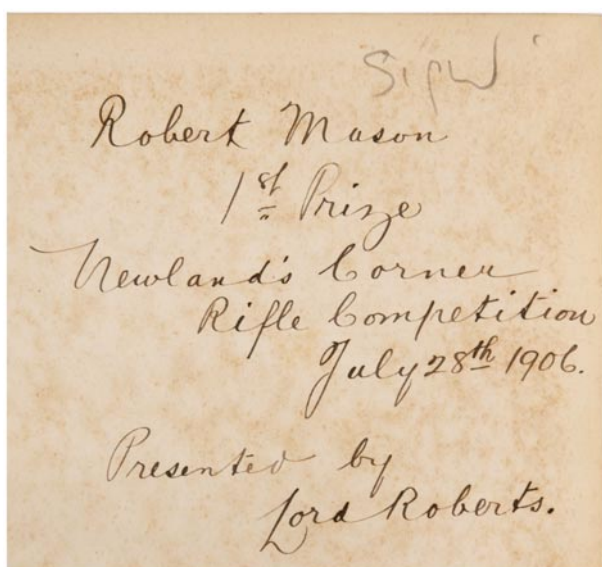 Sigd
Robert Mason
1st Prize
Newland's Corner
Rifle Competition
July 28th 1906.
Presented by
Lord Roberts.